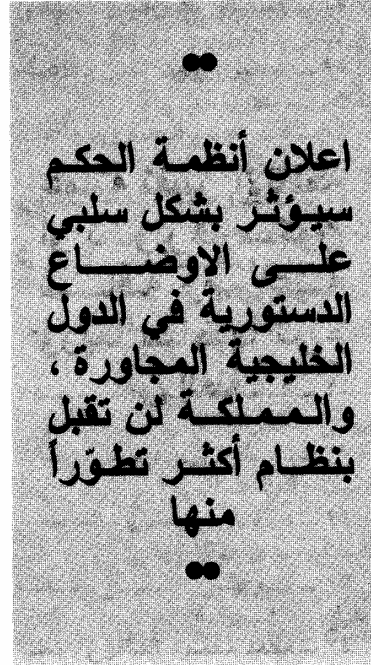 اعلان أنظمة الحكم
سيؤثر بشكل سلبي
على الاوضاع
الدستورية في الدول
الخليجية المجاورة ،
والمملكة لن تقبل
بنظام أكثر تطوّراً
منها